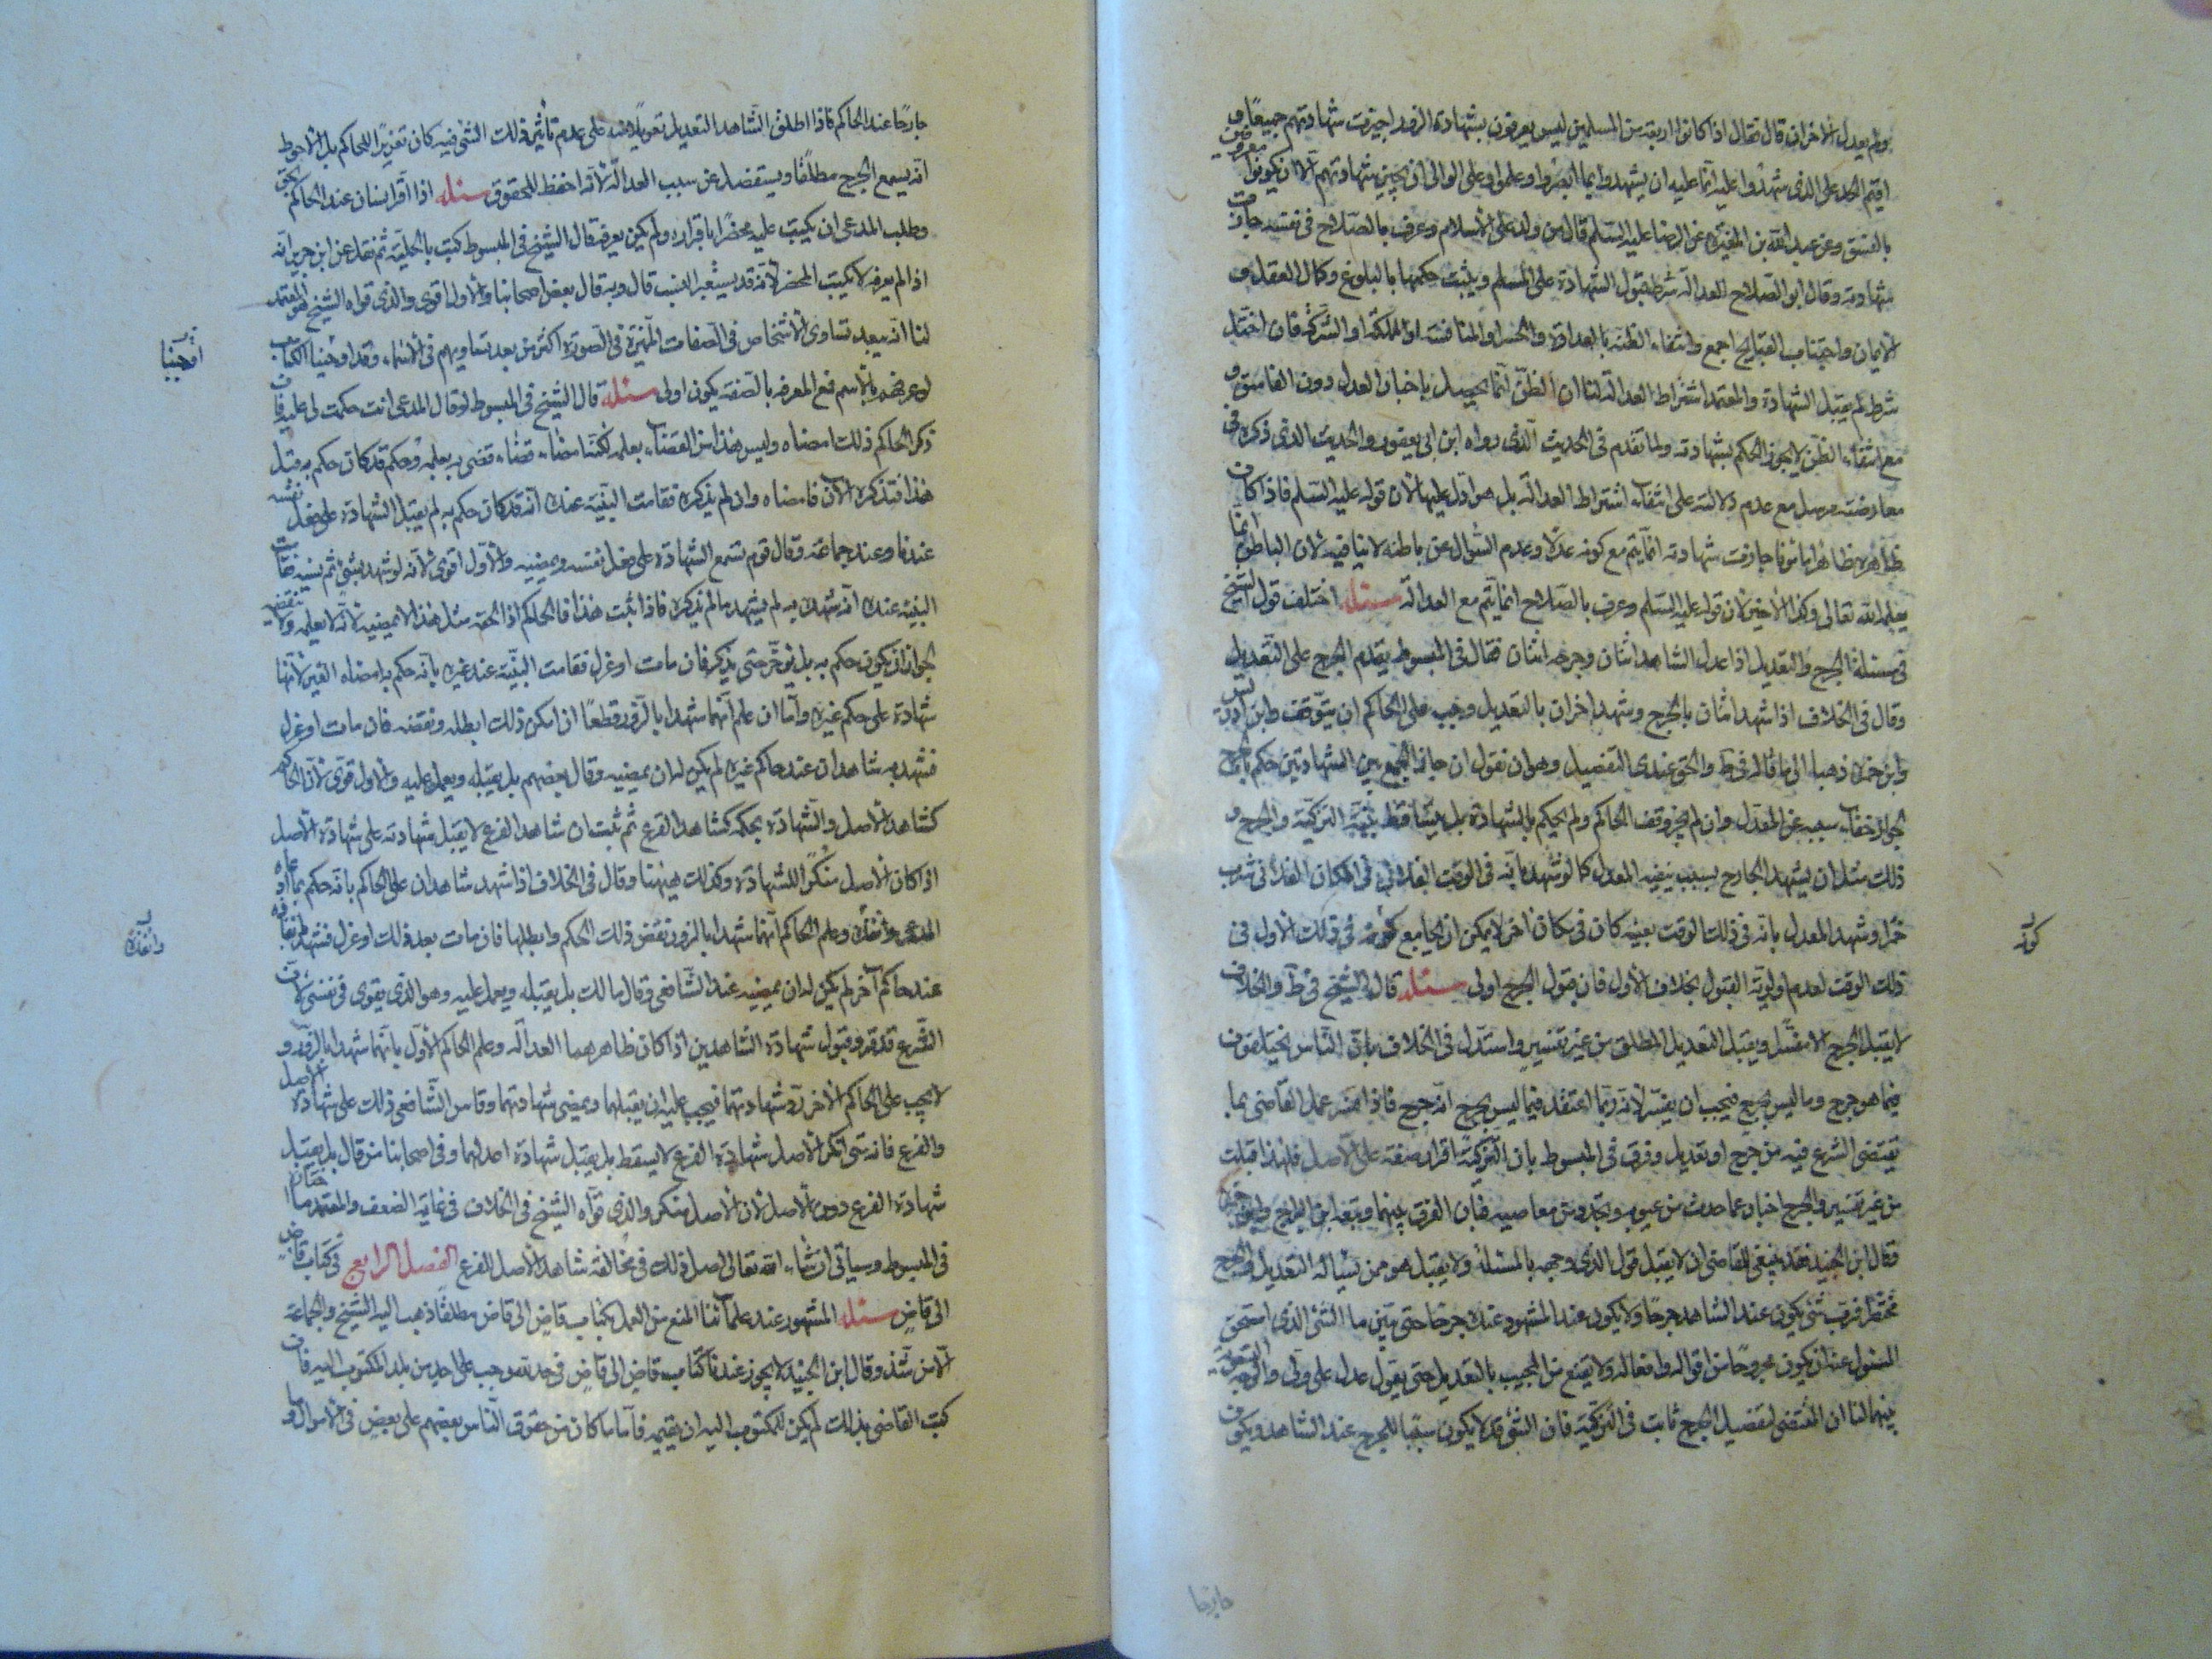 ولم يعدل الاخران قال فقال اذا كانوا اربعة من المسلمين ليس يعرفون بشهادة الزور اجيزت شهادتهم جميعًا و
اقيم الحد على الذى شهدوا عليه انما عليهم ان يشهدوا بما ابصروا وعلموا وعلى الوالى ان يجيز شهادتهم الا ان يكونوا معروفين
بالفسق وعن عبد الله بن المغيرة عن الرضا عليه السلم قال من ولد على الاسلام وعرف بالصلاح فى نفسه جازت
شهادته وقال ابو الصلاح العدالة شرط قبول الشهادة على المسلم ويثبت حكمها بالبلوغ وكمال العقل و
الايمان واجتناب القبايح اجمع وانتفاء الظنه بالعداوة والحسد او المنافسة او المملكة او الشركة فان اختل
شرط لم يقبل الشهادة والمعتمد اشتراط العدالة لنا ان الظن انما يحصل باخبار العدل دون الفاسق و
مع انتفاء الظن لا يجوز الحكم بشهادته ولما تقدم فى الحديث الذى رواه ابن ابى يعفور والحديث الذى ذكره فى
معارضته مرسل مع عدم دلالته على انتفاء اشتراط العدالة بل هو ادل عليها لان قوله عليه السلم فاذا كان
ظاهره ظاهرا مأمونا جازت شهادته انما يتم مع كونه عدلا وعدم السؤال عن باطنه لا ينافيه لان الباطن انما
يعلمه الله تعالى وكذا الاخير لان قوله عليه السلم وعرف بالصلاح انما يتم مع العدالة مسئله اختلف قول الشيخ
فى مسئلة الجرح والتعديل اذا عدل الشاهد اثنان وجرحه اثنان فقال فى المبسوط يقدم الجرح على التعديل
وقال فى الخلاف اذا شهد اثنان بالجرح وشهد اخران بالتعديل وجب على الحاكم ان يتوقف وابن ادريس
وابن حمزة ذهبا الى ما قاله فى ط والحق عندى التفصيل وهو ان نقول ان جاز الجمع بين الشهادتين حكم بالجرح
لجواز خفاء سببه عن المعدل وان لم يجز وقف الحاكم ولم يحكم بالشهادة بل يتساقط بينة التزكية والجرح و
ذلك مثل ان يشهد الجارح بسبب ينفيه المعدل كما لو شهد بانه فى الوقت الفلانى فى المكان الفلانى شرب
خمرا وشهد المعدل بانه فى ذلك الوقت بعينه كان فى مكان اخر لا يمكن ان يجامع كونه فى ذلك الاول فى
كونه
ذلك الوقت لعدم اولوية القبول بخلاف الاول فان قبول الجرح اولى مسئله قال الشيخ فى ط والخلاف
لا يقبل الجرح الا مفسرا ويقبل التعديل المطلق من غير تفسير واستدل فى الخلاف بان الناس يختلفون
فيما هو جرح وما ليس بجرح فيجب ان يفسر لانه ربما اعتقد فيما ليس بجرح انه جرح فاذا فسره عمل القاضى بما
يقتضى الشرع فيه من جرح او تعديل وفرق فى المبسوط بان التزكية اقرار صفة على الاصل فلهذا قبلت
من غير تفسير والجرح اخبار عما حدث من عيوبه وتجدد من معاصيه فبان الفرق بينهما وتبعه ابن ادريس وابن حمزة
وقال ابن الجنيد فقد ينبغى للقاضى ان لا يقبل قول الذى وجهه بالمسئلة ولا يقبل هو ممن يسأله التعديل والجرح
مختصرا فرب شىء يكون عند الشاهد جرحًا ولا يكون عند المشهود عنده جرحا حتى يتبين ما الشىء الذى استحق
المسئول عنه ان يكون مجروحًا من اقواله وافعاله ولا يقنع من المجيب بالتعديل حتى يقول عدل على ولى والوجه التسوية
بينهما لنا ان المقتضى لتفصيل الجرح ثابت فى التزكية فان الشىء قد لا يكون سببًا للجرح عند الشاهد ويكون
جارحا
جارحًا عند الحاكم فاذا اطلق الشاهد التعديل تعويلًا منه على عدم تأثير ذلك الشىء فيه كان تغريرًا للحاكم بل الاحوط
انه يسمع الجرح مطلقًا ويستفصل عن سبب العدالة لانه احفظ للحقوق مسئله اذا اقر انسان عند الحاكم بحق
وطلب المدعى ان يكتب عليه محضرًا باقراره ولم يكن يعرفه قال الشيخ فى المبسوط كتب بالحلية ثم نقل عن ابن جرير انه
اذا لم يعرفه لا يكتب المحضر لانه قد يستعير النسب قال وبه قال بعض اصحابنا والاول اقوى والذى قواه الشيخ هو المعتمد
لنا انه يبعد تساوى الاشخاص فى الصفات المميزة فى الصورة اكثر من بعد تساويهم فى الاسماء وقد اوجبنا الكتاب
اوجبنا
لو عرفهم بالاسم فمع المعرفه بالصفة يكون اولى مسئله قال الشيخ فى المبسوط لو قال المدعى انت حكمت لى عليه فان
ذكر الحاكم ذلك امضاه وليس هذا من القضاء بعلمه لكنه امضاء قضاء قضى به بعلمه وحكم قد كان حكم به قبل
هذا فتذكره الآن فامضاه وان لم يذكره فقامت البينة عنده انه قد كان حكم به لم يقبل الشهادة على فعل نفسه
عندنا وعند جماعة وقال قوم تسمع الشهادة على فعل نفسه ويمضيه والاول اقوى لانه لو شهد بشئ ثم نسيه فقامت
البينة عنده انه شهد به لم يشهد ما لم يذكره فاذا ثبت هذا فالحاكم اذا لحقه مثل هذا لا يمضيه لانه لا يعلمه ولا ينقضه
لجواز ان يكون حكم به بل يؤخر حتى يذكر فان مات او عزل فقامت البينة عند غيره بانه حكم به امضاه الغير لانها
شهادة على حكم غيره واما ان علم انهما شهدا بالزور قطعًا ان امكن ذلك ابطله ونقضه فان مات او عزل
فشهد به شاهدان عند حاكم غيره لم يكن له ان يمضيه وقال بعضهم بل يقبله ويعمل عليه والاول قوى لان الحاكم
كشاهد الاصل والشهادة بحكمه كشاهد الفرع ثم ثبت ان شاهد الفرع لا يقبل شهادته على شهادة الاصل
اذا كان الاصل منكرًا للشهادة وكذلك هيهنا وقال فى الخلاف اذا شهد شاهدان على الحاكم بانه حكم بما ادعاه
المدعى وانفذه وعلم الحاكم انهما شهدا بالزور نقض ذلك الحكم وابطلها فان مات بعد ذلك او عزل فشهد بانفاذه
وانفذه
عند حاكم آخر لم يكن له ان يمضيه عند الشافعى وقال مالك بل يقبله ويعمل عليه وهو الذى يقوى فى نفسى لان
الشرع قد قرر قبول شهادة الشاهدين اذا كان ظاهرهما العدالة وعلم الحاكم الاول بانهما شهدا بالزور و
لا يجب على الحاكم الاخر رد شهادتهما فيجب عليه ان يقبلهما ويمضى شهادتهما وقاس الشافعى ذلك على شهادة الاصل
والفرع فانه متى انكر الاصل شهادة الفرع لا يسقط بل يقبل شهادة اعدلهما وفى اصحابنا من قال بل يقبل
شهادة الفرع دون الاصل لان الاصل منكر والذى قواه الشيخ فى الخلاف فى غاية الضعف والمعتمد ما اختاره
فى المبسوط وسيأتى ان شاء الله تعالى اصل ذلك فى مخالفة شاهد الاصل الفرع الفصل الرابع فى كتاب قاضٍ
الى قاضٍ مسئله المشهور عند علمائنا المنع من العمل بكتاب قاض الى قاض مطلقًا ذهب اليه الشيخ والجماعة
الا من شذ وقال ابن الجنيد لا يجوز عندنا كتاب قاض الى قاض فى حد لله وجب على احد من بلد المكتوب اليه فان
كتب القاضى بذلك لم يكن للمكتوب اليه ان يقيمه فأما ما كان من حقوق الناس بعضهم على بعض فى الاموال و